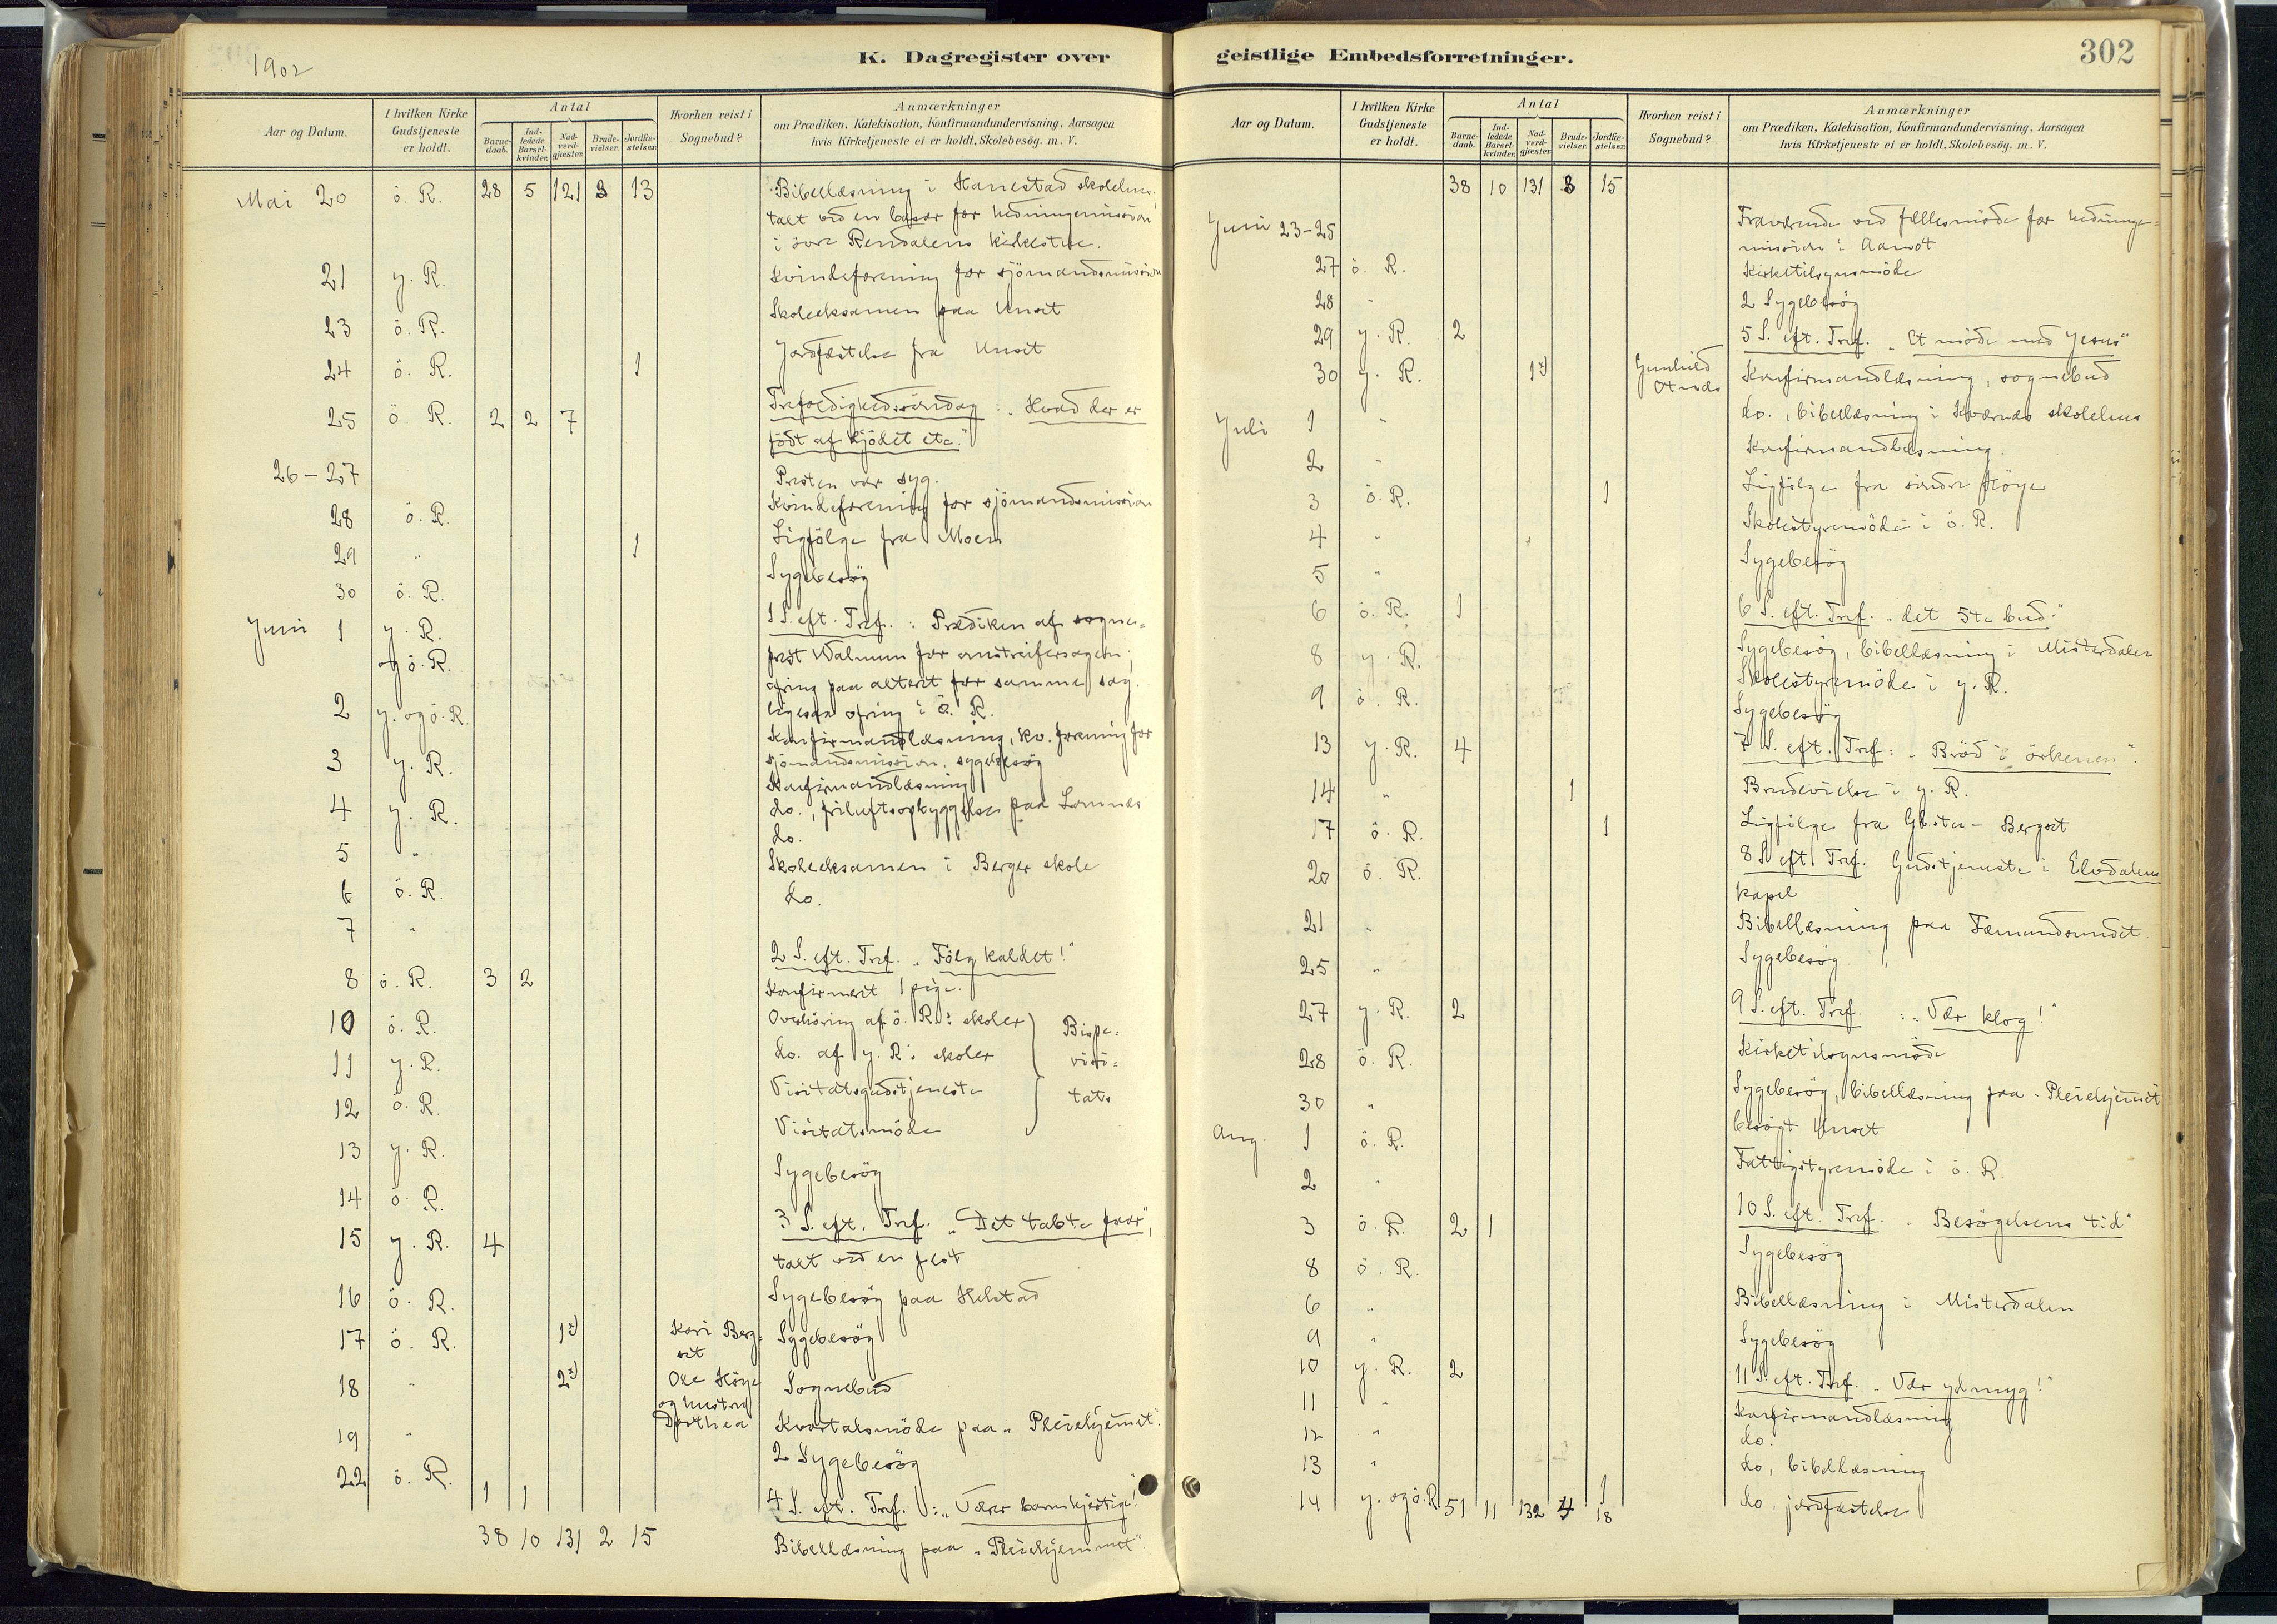 1902
K. Dagregister over
Aar og Datum.
I hvilken Kirke Gudstjeneste er holdt.
Antal
Barne-daab.
Ind-ledede Barsel-kvinder.
Nad-verd-gjæster.
Brude-vielser.
Jordfæ-stelser.
Hvorhen reist i Sognebud?
Anmærkninger
om Prædiken, Katekisation, Konfirmandundervisning, Aarsagen
hvis Kirketjeneste ei er holdt, Skolebesög. m. V.
Mai 20 ö. R. 28 5 121 3 13 Bibellæsning i Hanestad skolehus.
talt ved en basar for hedningemission
i övre Rendalens kirkestue.
21 y. R. Kvindeforening for sjömandsmission
23 ö. R. Skoleeksamen paa Unset
24 ö. R. 1 Jordfæstelse fra Unset
25 ö. R. 2 2 7 Trefoldighedssöndag: "Hvad der er
födt af kjödet etc."
26-27 Presten var syg.
28 ö. R. Kvindeforening for sjömandsmission
29 " 1 Ligfölge fra Moen
30 ö. R. Sygebesög
Juni 1 y. R. 1 S. eft. Tref.: Prædiken af sogne-
og ö. R. prest Walnum for omstreifersagen;
ofring paa alteret for samme sag.
ligesaa ofring i ö. R.
2 y. og ö. R. Konfirmandlæsning, kv. forening for
sjömandsmission. sygebesög
3 y. R. Konfirmandlæsning
4 y. R. do., friluftsopbyggelse paa Lomnes
5 " do.
6 ö. R. Skoleeksamen i Berger skole
7 " do.
8 ö. R. 3 2 2 S. eft. Tref. "Fölg kaldet!"
Konfirmert 1 pige.
10 ö. R. Overhöring af ö. R.s skoler
11 y. R. do. af y. R.s skoler
12 ö. R. Visitatsgudstjeneste
13 y. R. Visitatsmöde
Bispe-
visi-
tats
14 ö. R. Sygebesög
15 y. R. 4 3 S. eft. Tref. "Det tabte faar",
talt ved en fest
16 ö. R. Sygebesög paa Helstad
17 ö. R. 1 x) Kari Berg-
set Sygebesög
18 " 2 x) Ole Höye
og hustru
Dorthea Sognebud
19 " Kvartalsmöde paa "Pleiehjemmet".
22 ö. R. 1 1 2 Sygebesög
4 S. eft. Tref.: "Vær barmhjertige!"
Bibellæsning paa "Pleiehjemmet".
38 10 131 2 15
geistlige Embedsforretninger.
302
Aar og Datum.
I hvilken Kirke Gudstjeneste er holdt.
Antal
Barne-daab.
Ind-ledede Barsel-kvinder.
Nad-verd-gjæster.
Brude-vielser.
Jordfæ-stelser.
Hvorhen reist i Sognebud?
Anmærkninger
om Prædiken, Katekisation, Konfirmandundervisning, Aarsagen
hvis Kirketjeneste ei er holdt, Skolebesög. m. V.
38 10 131 3 15
Juni 23-25 Fraværende ved fællesmöde for hedninge-
mission i Aamot
27 ö. R. Kirketilsynsmöde
28 " 2 Sygebesög
29 y. R. 2 5 S. eft. Tref. "Et möde med Jesus"
30 y. R. 1 x) Gunhild
Otnes Konfirmandlæsning, sognebud
Juli 1 " do., bibellæsning i Kværnes skolehus
2 " Konfirmandlæsning.
3 ö. R. 1 Ligfölge fra söndre Höye
4 " Skolestyremöde i ö. R.
5 " Sygebesög
6 ö. R. 1 6 S. eft. Tref. "det 5te bud."
8 y. R. Sygebesög, bibellæsning i Misterdalen
9 ö. R. Skolestyremöde i y. R.
Sygebesög
13 y. R. 4 7 S. eft. Tref: "Bröd i örkenen".
14 " 1 Brudevielse i y. R.
17 ö. R. 1 Ligfölge fra Gl.stu-Bergset
20 ö. R. 8 S. eft. Tref. Gudstjeneste i Elvdalens
kapel
21 " Bibellæsning paa Fæmundsundet.
25 " Sygebesög
27 y. R. 2 9 S. eft. Tref.: "Vær klog!"
28 ö. R. Kirketilsynsmöde
30 " Sygebesög, bibellæsning paa "Pleiehjemmet
Aug. 1 ö. R. besögt Unset
2 " Fattigstyremöde i ö. R.
3 ö. R. 2 1 10 S. eft. Tref. "Besögelsens tid"
8 ö. R. Sygebesög
6 " Bibellæsning i Misterdalen
9 " Sygebesög
10 y. R. 2 11 S. eft. Tref. "Vær ydmyg!"
11 " Konfirmandlæsning
12 " do.
13 " do, bibellæsning
14 y. og ö. R. 1 do, jordfæstelse
51 11 132 4 18